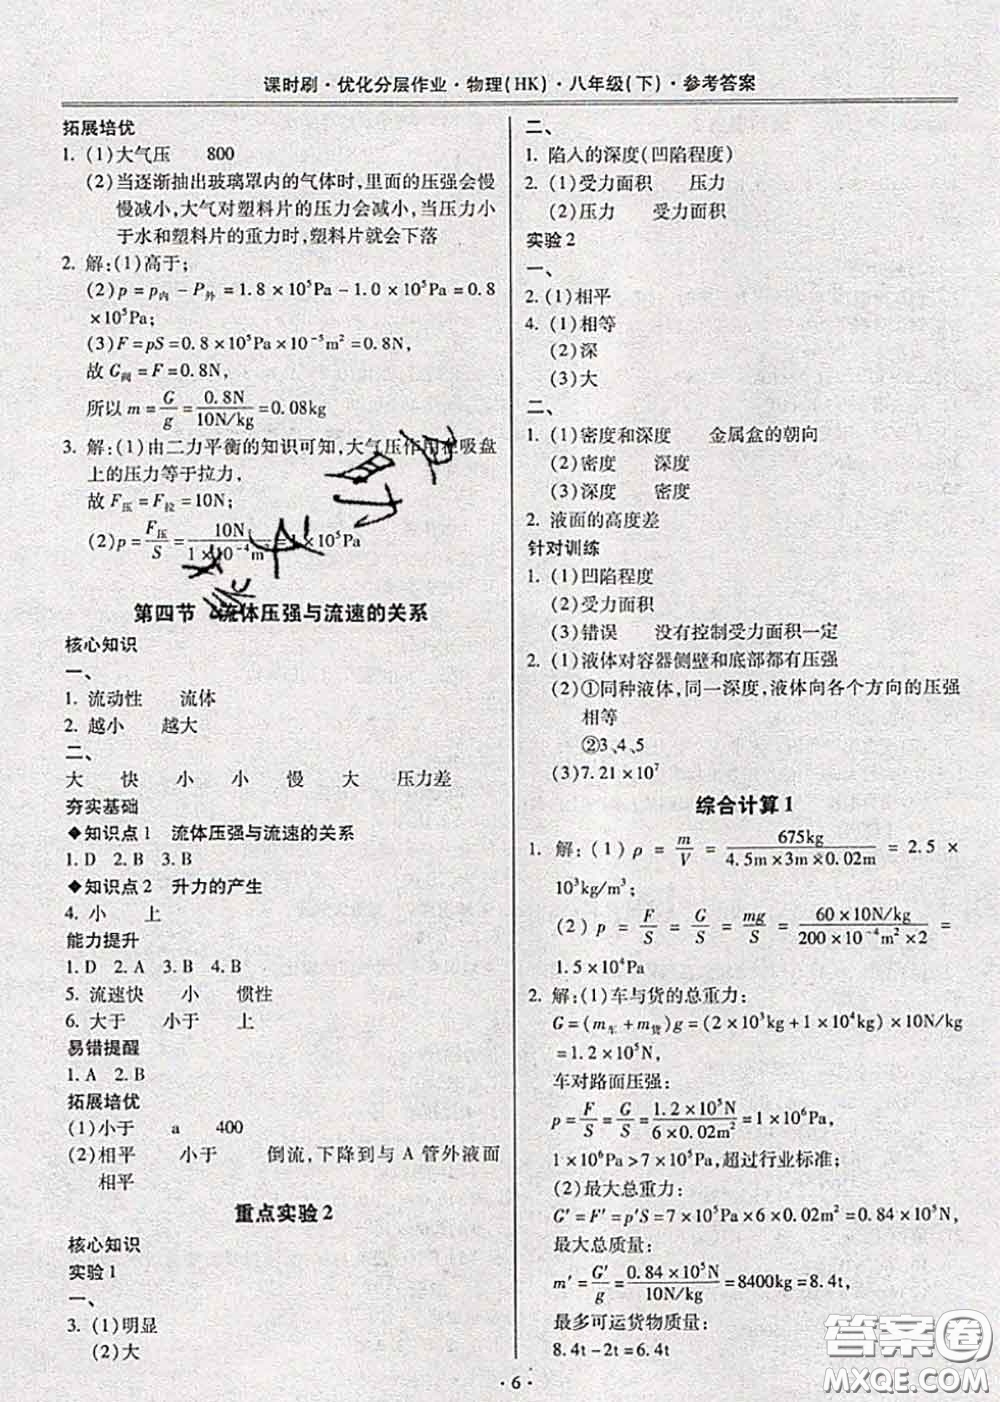 课时刷·优化分层作业·物理(HK)·八年级(下)·参考答案
拓展培优
1. (1)大气压　800
(2)当逐渐抽出玻璃罩内的气体时,里面的压强会慢
慢减小,大气对塑料片的压力会减小,当压力小
于水和塑料片的重力时,塑料片就会下落
2. 解:(1)高于;
(2)p=p内-P外=1.8×10⁵Pa-1.0×10⁵Pa=0.8
×10⁵Pa;
(3)F=pS=0.8×10⁵Pa×10⁻⁵m²=0.8N,
故G阀=F=0.8N,
所以m=G/g=0.8N/10N/kg=0.08kg
3. 解:(1)由二力平衡的知识可知,大气压作用在吸盘
上的压力等于拉力,
故F压=F拉=10N;
(2)p=F压/S=10N/1×10⁻⁴m²=1×10⁵Pa
第四节　流体压强与流速的关系
核心知识
一、
1. 流动性　流体
2. 越小　越大
二、
大　快　小　小　慢　大　压力差
夯实基础
◆知识点1　流体压强与流速的关系
1. D　2. B　3. B
◆知识点2　升力的产生
4. 小　上
能力提升
1. D　2. A　3. B　4. B
5. 流速快　小　惯性
6. 大于　小于　上
易错提醒
1. A　2. B
拓展培优
(1)小于　a　400
(2)相平　小于　倒流,下降到与A管外液面
相平
重点实验2
核心知识
实验1
一、
3. (1)明显
(2)大
二、
1. 陷人的深度(凹陷程度)
2. (1)受力面积　压力
(2)压力　受力面积
实验2
一、
2. (1)相平
4. (1)相等
(2)深
(3)大
二、
1. (1)密度和深度　金属盒的朝向
(2)密度　深度
(3)深度　密度
2. 液面的高度差
针对训练
1. (1)凹陷程度
(2)受力面积
(3)错误　没有控制受力面积一定
2. (1)液体对容器侧壁和底部都有压强
(2)①同种液体,同一深度,液体向各个方向的压强
相等
②3、4、5
(3)7.21×10⁷
综合计算1
1. 解:(1)ρ=m/V=675kg/4.5m×3m×0.02m=2.5×
10³kg/m³;
(2)p=F/S=G/S=mg/S=60×10N/kg/200×10⁻⁴m²×2=
1.5×10⁴Pa
2. 解:(1)车与货的总重力:
G=(m车+m货)g=(2×10³kg+1×10⁴kg)×10N/kg
=1.2×10⁵N,
车对路面压强:
p=F/S=G/S=1.2×10⁵N/6×0.02m²=1×10⁶Pa,
1×10⁶Pa>7×10⁵Pa,超过行业标准;
(2)最大总重力:
G′=F′=p′S=7×10⁵Pa×6×0.02m²=0.84×10⁵N,
最大总质量:
m′=G′/g=0.84×10⁵N/10N/kg=8400kg=8.4t,
最多可运货物质量:
8.4t-2t=6.4t
·6·
答案圈
MXQE.COM